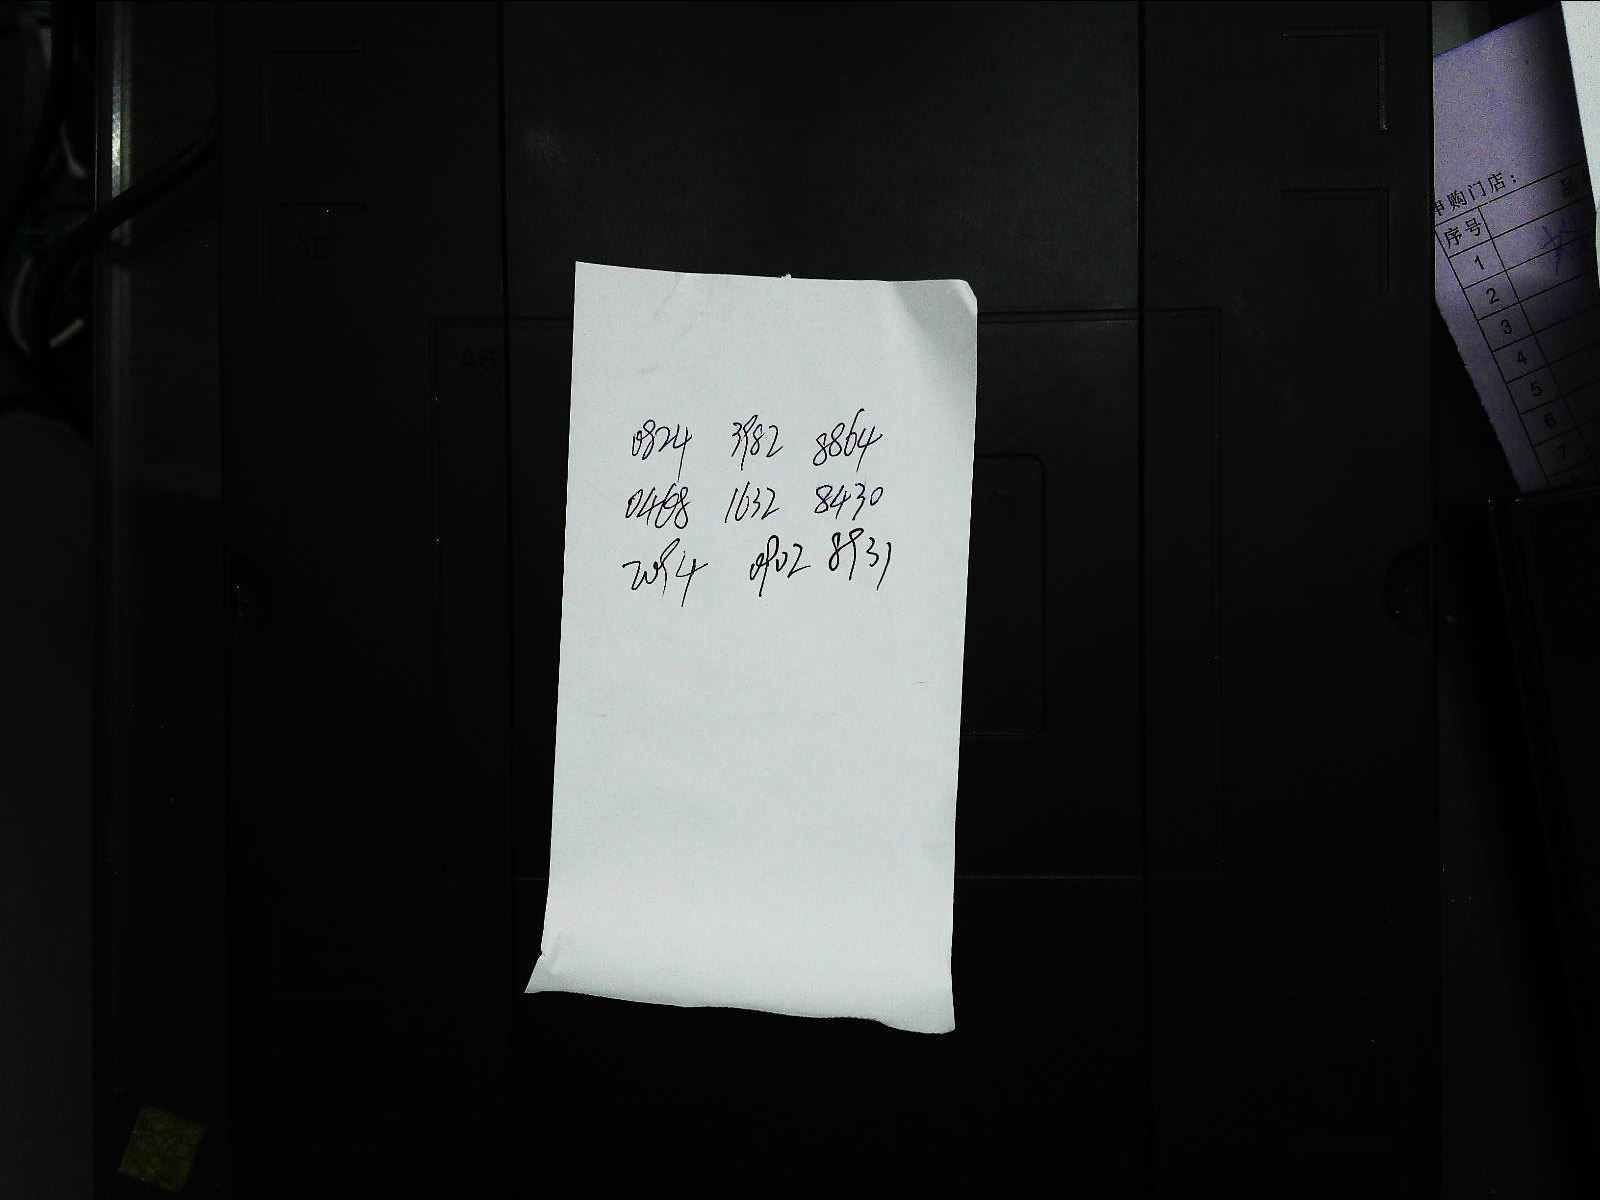 0824 3982 8864
0468 1632 8430
2094 0902 8931
A4
A5
A6
申购门店：
序号 品
1
2
3
4
5
6
7